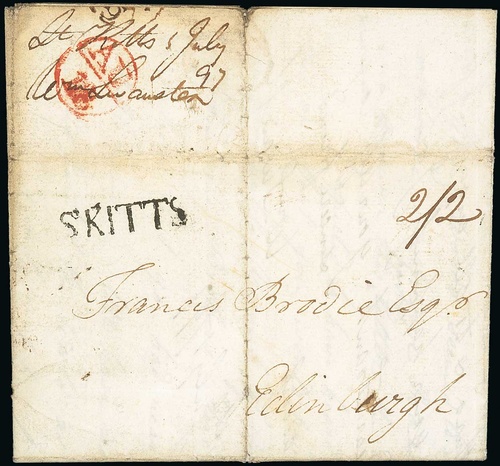 St Kitts 5 July
97
SKITTS
2/2
Francis Brodie Esqr
Edinburgh